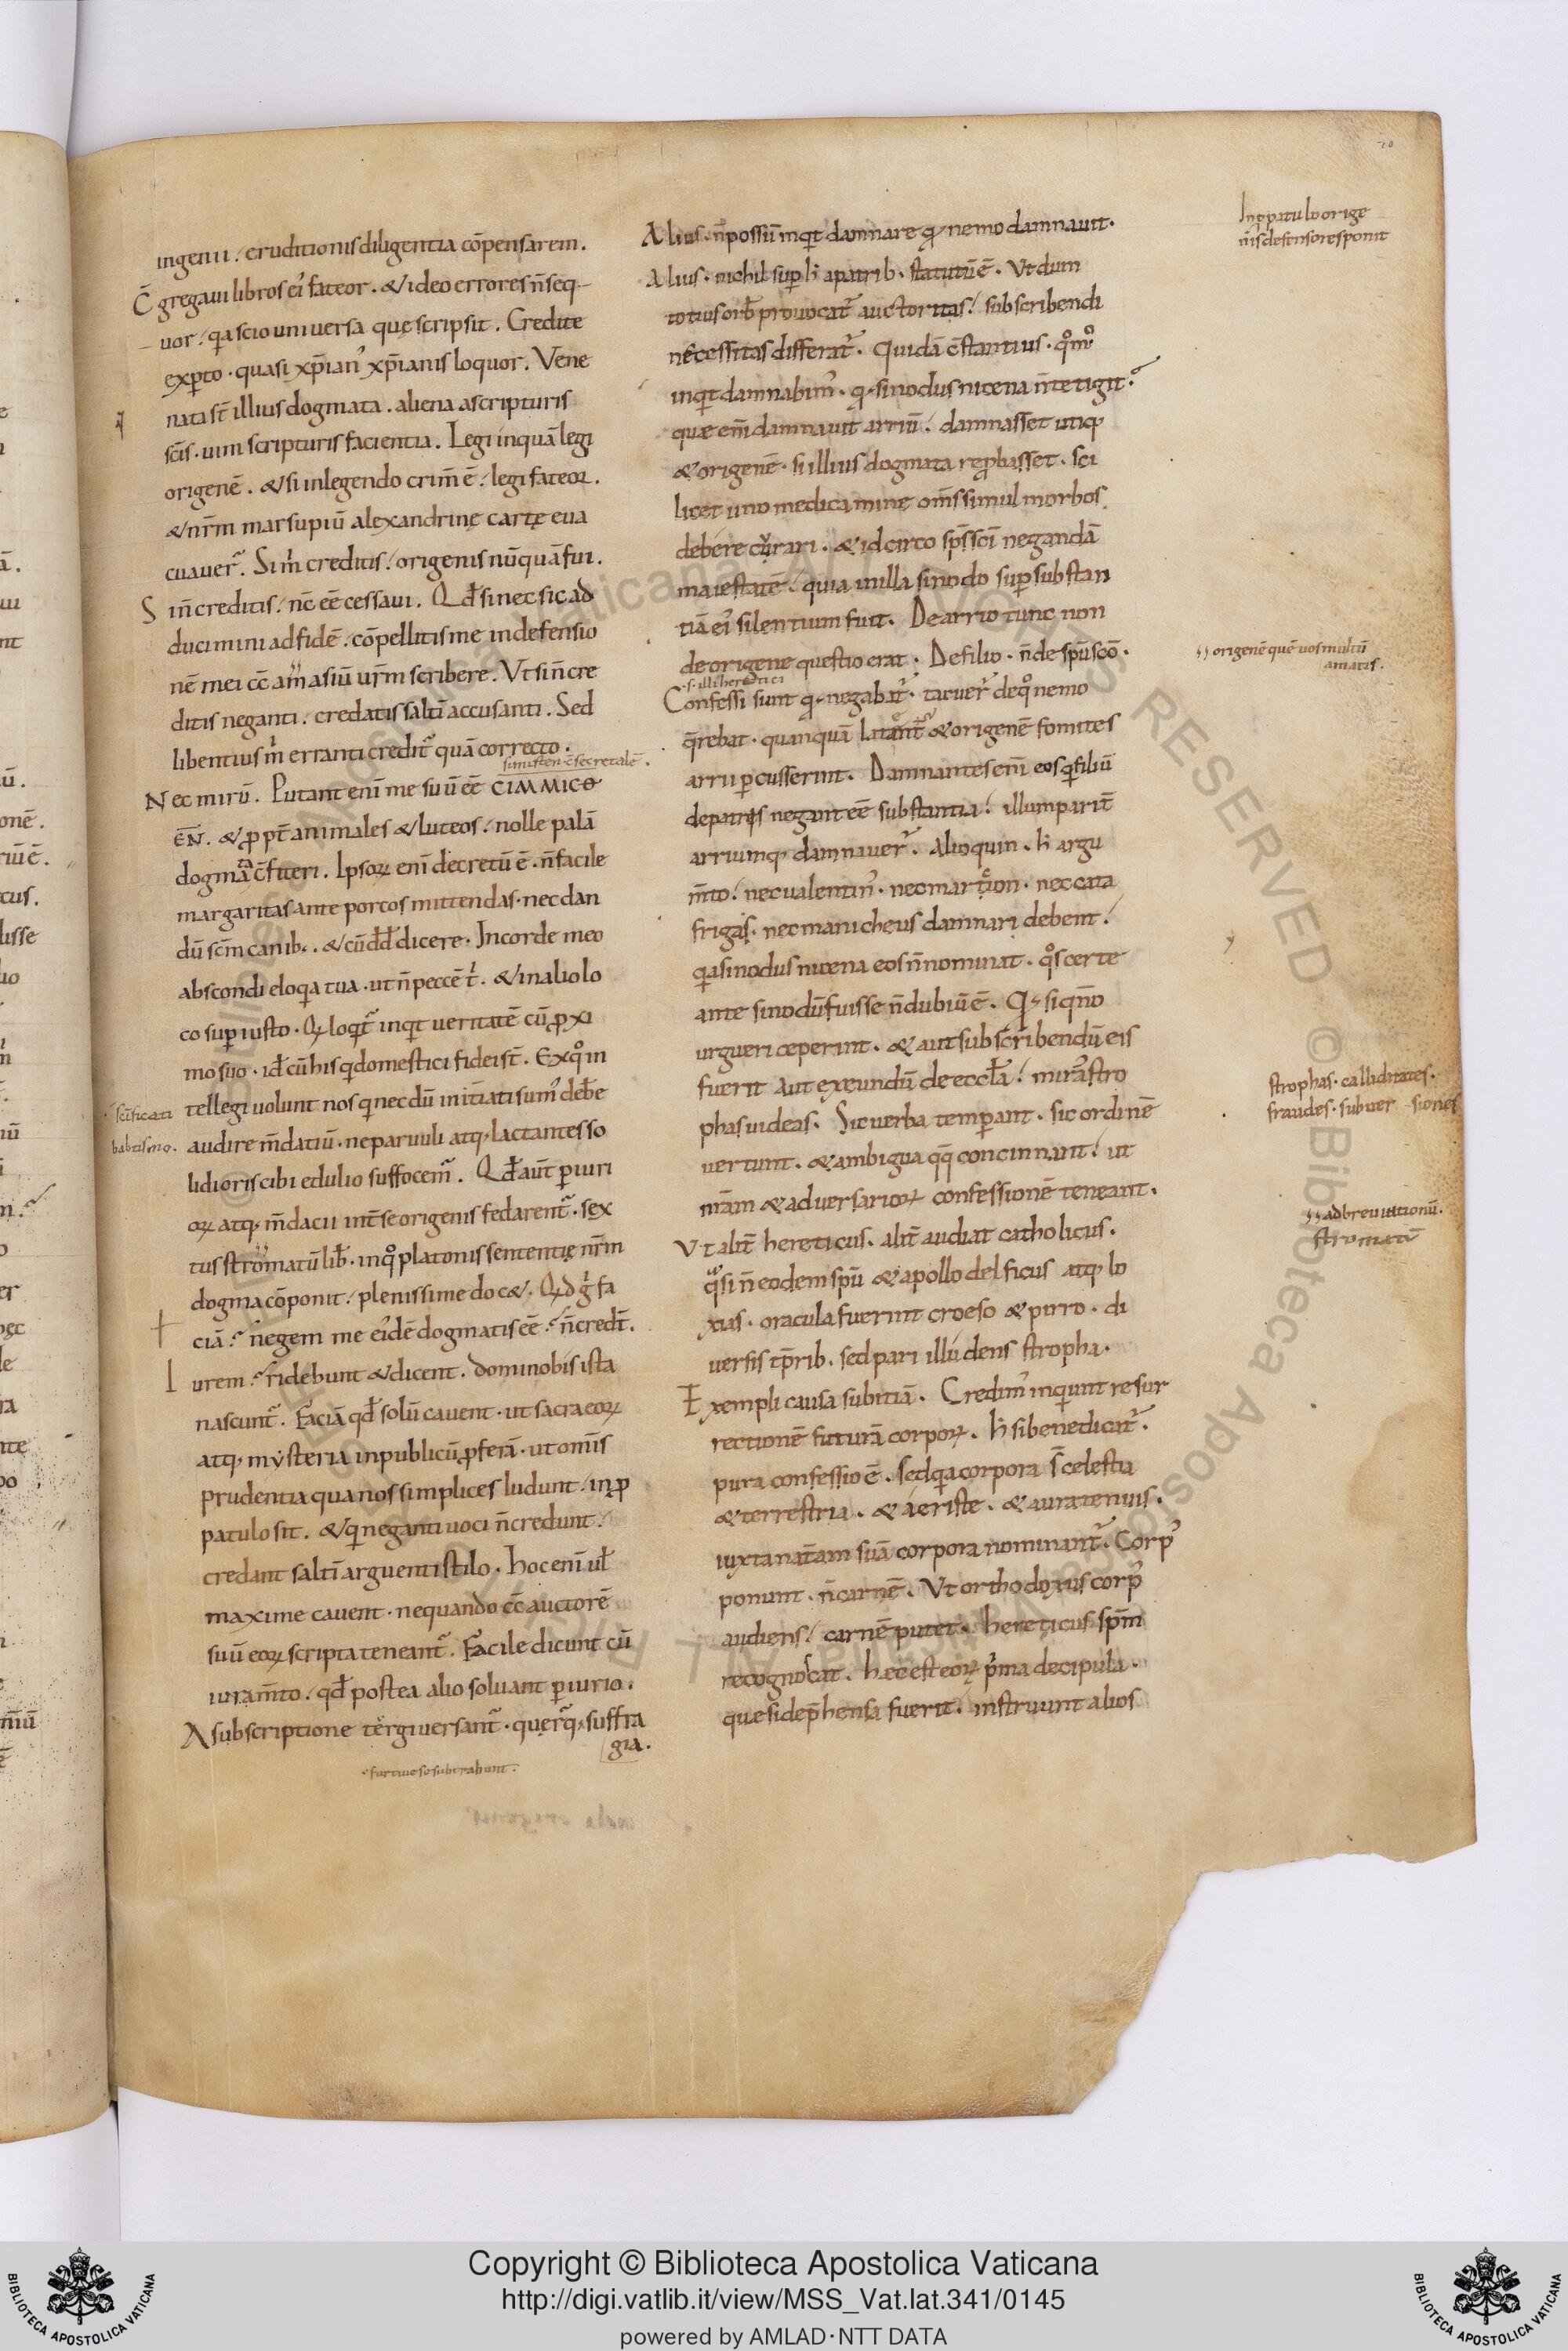 ingenii / eruditionis diligentia cōpensarem.
C̄gregaui libros ei' fateor. & ideo errores n̄ seq
uor / qa scio uniuersa quę scripsit. Credite
exp̱to. quasi xp̄ian' xp̄ianis loquor. Vene
nata st̄ illius dogmata. aliena ascripturis
sc̄is. uim scripturis facientia. Legi inquā legi
origenē. & si inlegendo crim̄ ē / legi fateor.
& nr̄m marsupiū alexandrinę cartę eua
cuauer̄. Si m creditis / origenis nūquā fui.
Si n̄ creditis / nc̄ eē cessaui. Qd̄ si nec sic ad
ducimini ad fidē. cōpellitis me in defensio
nē mei cc̄ amasiū ur̄m scribere. Vt si n̄ cre
ditis neganti / credatis saltī accusanti. Sed
libentius m erranti credit̄ quā correcto.
simisten. c̄secretalē.
Nec mirū. Putant enī me suū eē CIMMICΘ
ЄN. & ꝓpt̄ animales & luteos / nolle palā
dogmata c̄fiteri. Ipsoꝝ enī decretū ē. n̄ facile
margaritas ante porcos mittendas. nec dan
dū sc̄m canib;. & cū dd̄ dicere. In corde meo
abscondi eloqa tua. ut n̄ peccē t. & in alio lo
co sup̱ iusto. Qi loqt̄ inqt ueritatē cū ꝓxi
mo suo. id̄ cū his qi domestici fidei st̄. Ex qo in
tellegi uolunt nos qi nec dū initiati sum' deb̄e
sc̄ificati
babtismo.
audire m̄datiū. ne paruuli atq; lactantes so
lidioris cibi edulio suffocem̄. Qd̄ aut̄ p̱iuri
oꝝ atq; m̄dacii int̄ se origenis fedarent̄. sex
tus stromatū lib̄. in qo platonis sententię nr̄m
dogma cōponit / plenissime doc&. Qid g fa
ciā? negem me ei'dē dogmatis eē? n̄ credt̄.
Iurem? ridebunt & dicent. domi nobis ista
nascunt̄. Faciā qd̄ solū cauent. ut sacra eoꝝ
atq; mysteria in publicū ꝓferā. ut omīs
prudentia qua nos simplices ludunt / in ꝓ
patulo sit. & qi neganti uoci n̄ credunt /
credant saltī arguenti stilo. Hoc enī ul̄
maxime cauent. nequando cc̄ auctorē
suū eoꝝ scripta teneant̄. Facile dicunt cū
iuram̄to / qd̄ postea alio soluant p̱iurio.
A subscriptione tergiuersant̄. querꝯq; suffra
gia.
. furtiue se subtrahunt.
Alius. n̄ possū inqt damnare q nemo damnauit.
Alius. nichil sup̱ h apatrib. statutū ē. Vt dum
totius orb̄ prouocat̄ auctoritas / subscribendi
necessitas differat̄. Quidā c̄stantius. qomo
inqt damnabim'. q sinodus nicena n̄ tetigit?
quæ enī damnauit arriū / damnasset utiq;
& origenē. si illius dogmata rep̱basset. sci
licet uno medicamine om̄s simul morbos
debere curari. & idcirco sp̄s sc̄i negandā
maiestatē / quia in illa sinodo sup̱ substan
tiā ei' silentium fuit. De arrio tunc non
de origene questio erat. De filio. n̄ de spū sc̄o.
.s. illi heretici
Confessi sunt q negabat̄. tacuer̄ de qo nemo
q̄rebat. quanquā latānt̄ & origenē fomites
arrii p̱cusserint. Damnantes enī eos qi filiū
de patris negant eē substantia / illum parit̄
arriumq; damnauer̄. Alioquin. h argu
m̄to / nec ualentin'. nec martion. nec cata
frigas. nec manicheus damnari debent /
qa sinodus nicena eos n̄ nominat. qos certe
ante sinodū fuisse n̄ dubiū ē. Qi si qn̄o
urgueri ceperint. & aut subscribendū eis
fuerit aut exeundū de ecclā / miras stro
phas uideas. Sic uerba temp̱ant. sic ordinē
uertunt. & ambigua qq̄ concinnant / ut
nr̄am & aduersarioꝝ confessionē teneant.
Vt alit̄ hereticus. alit̄ audiat catholicus.
qasi n̄ eodem spū & apollo delficus atq; lo
xias. oracula fuerint croeso & pirro. di
uersis tp̄rib. sed pari illudens stropha.
Exempli causa subitiā. Credim' inquiunt resur
rectionē futurā corpoꝝ. h si bene dicat̄.
pura confessio ē. sed qa corpora s̄ celestia
& terrestria. & aer iste. & aura tenuis.
iuxta nat̄am suā corpora nominant̄. Corp'
ponunt. n̄ carnē. Vt orthodoxus corp'
audiens / carnē putet. hereticus sp̄m
recognoscat. hæc est eoꝝ p'ma decipula.
quæ si dep̄hensa fuerit / instruunt alios
In p̱patulo orige
nis defensores ponit
origenē quē uos multū
amatis.
strophas. calliditates.
fraudes. subuersiones
adbreuiationū.
stromatū
Copyright © Biblioteca Apostolica Vaticana
http://digi.vatlib.it/view/MSS_Vat.lat.341/0145
powered by AMLAD·NTT DATA
BIBLIOTECA APOSTOLICA VATICANA
BIBLIOTECA APOSTOLICA VATICANA